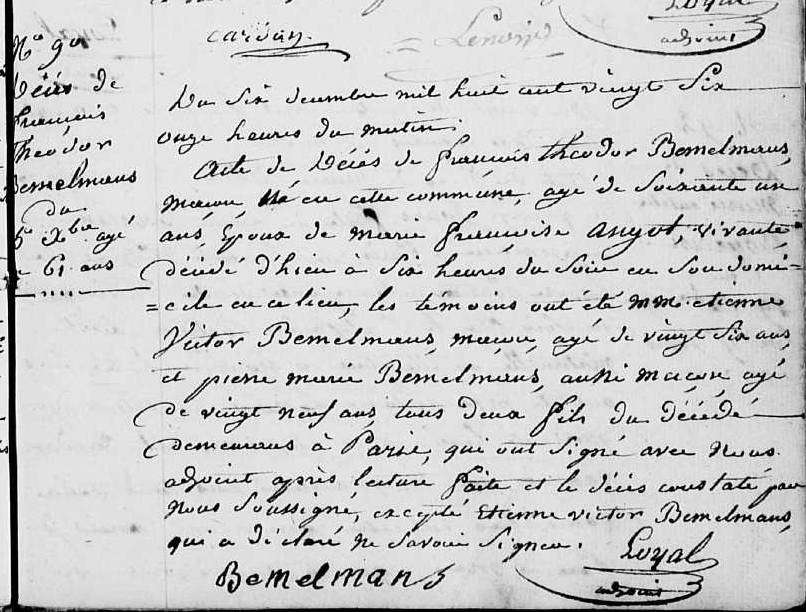 Cardun
Lenoir
Loyal
adjoint
N° 90
Décés de
françois
Theodor
Bemelmans
du
5 Xbre agé
de 61 ans
Du Six decembre mil huit cent vingt Six
onze heures du matin.
Acte de Décés de françois theodor Bemelmans,
macon, né en cette commune, agé de Soixante un
ans, Epoux de marie françoise angot, vivante
décédé d'hier à Six heures du Soir en Son domi=
=cile en ce lieu, les témoins ont été mm. etienne
Victor Bemelmans, macon, agé de vingt Six ans,
et pierre marie Bemelmans, aussi macon agé
de vingt neuf ans, tous deux fils du décédé
demeurans à Paris, qui ont Signé avec Nous
adjoint après lecture faite et le décés constaté par
Nous Soussigné, excepté Etienne victor Bemelmans,
qui a déclaré ne Savoir Signer.
Loyal
adjoint
Bemelmans